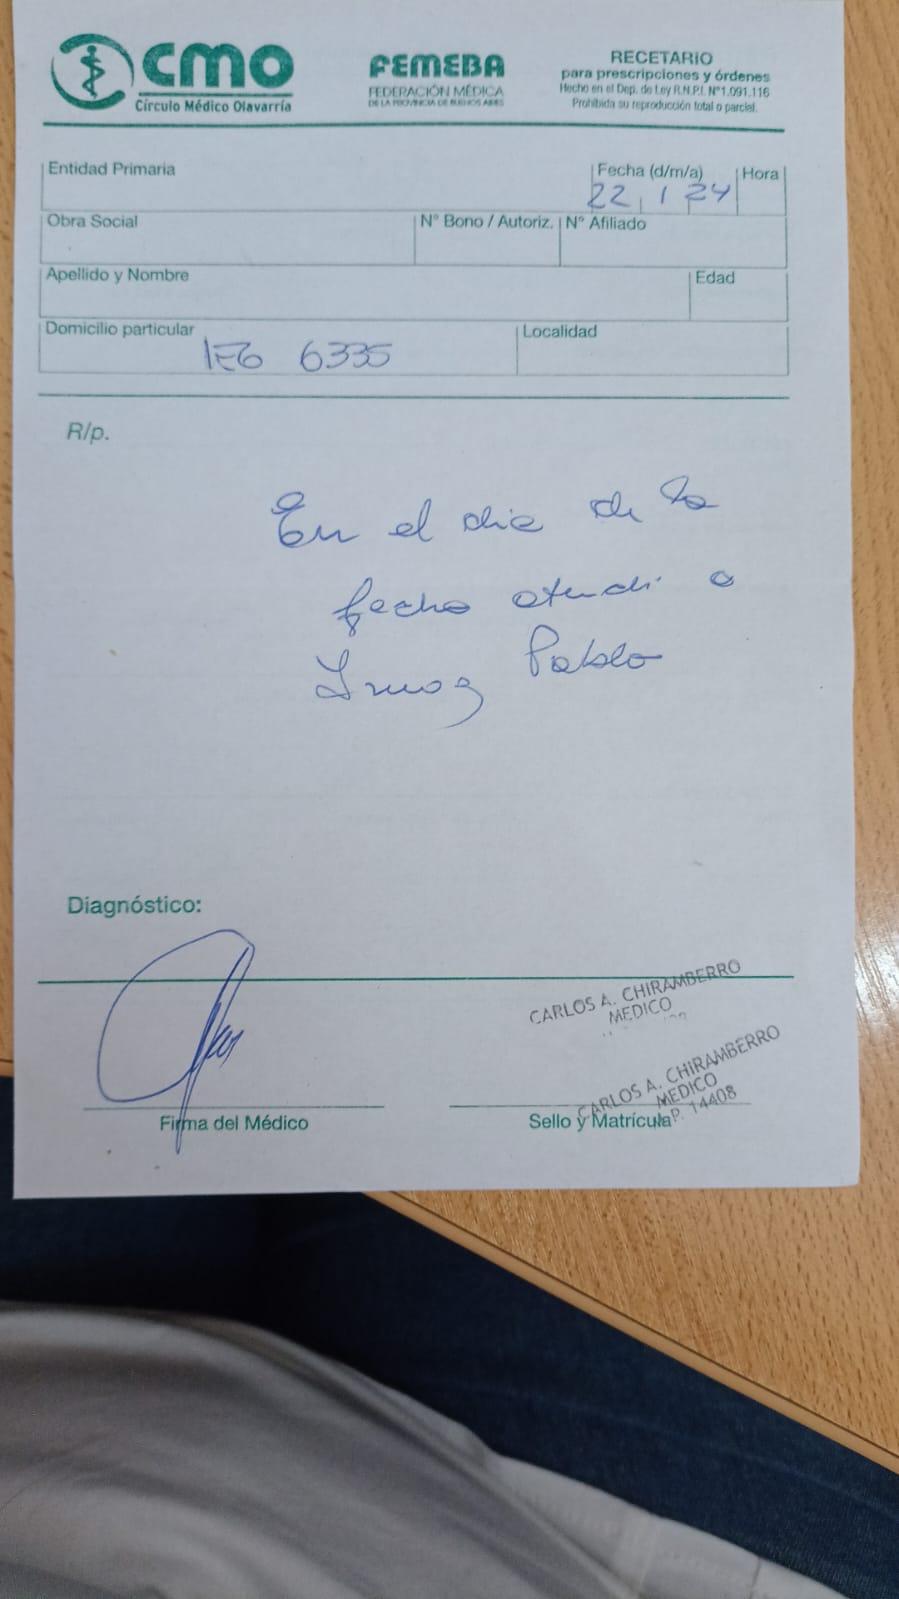 CMO
Círculo Médico Olavarría
FEMEBA
FEDERACIÓN MÉDICA
DE LA PROVINCIA DE BUENOS AIRES
RECETARIO
para prescripciones y órdenes
Hecho en el Dep. de Ley R.N.P.I. N°1.091.116
Prohibida su reproducción total o parcial.
Entidad Primaria
Fecha (d/m/a)
Hora
22 1 24
Obra Social
N° Bono / Autoriz.
N° Afiliado
Apellido y Nombre
Edad
Domicilio particular
Localidad
6335
R/p.
En el dia de la
fecha atendí a
Pablo
Diagnóstico:
CARLOS A. CHIRAMBERRO
MEDICO
CARLOS A. CHIRAMBERRO
MEDICO
P. 14408
Firma del Médico
Sello y Matrícula